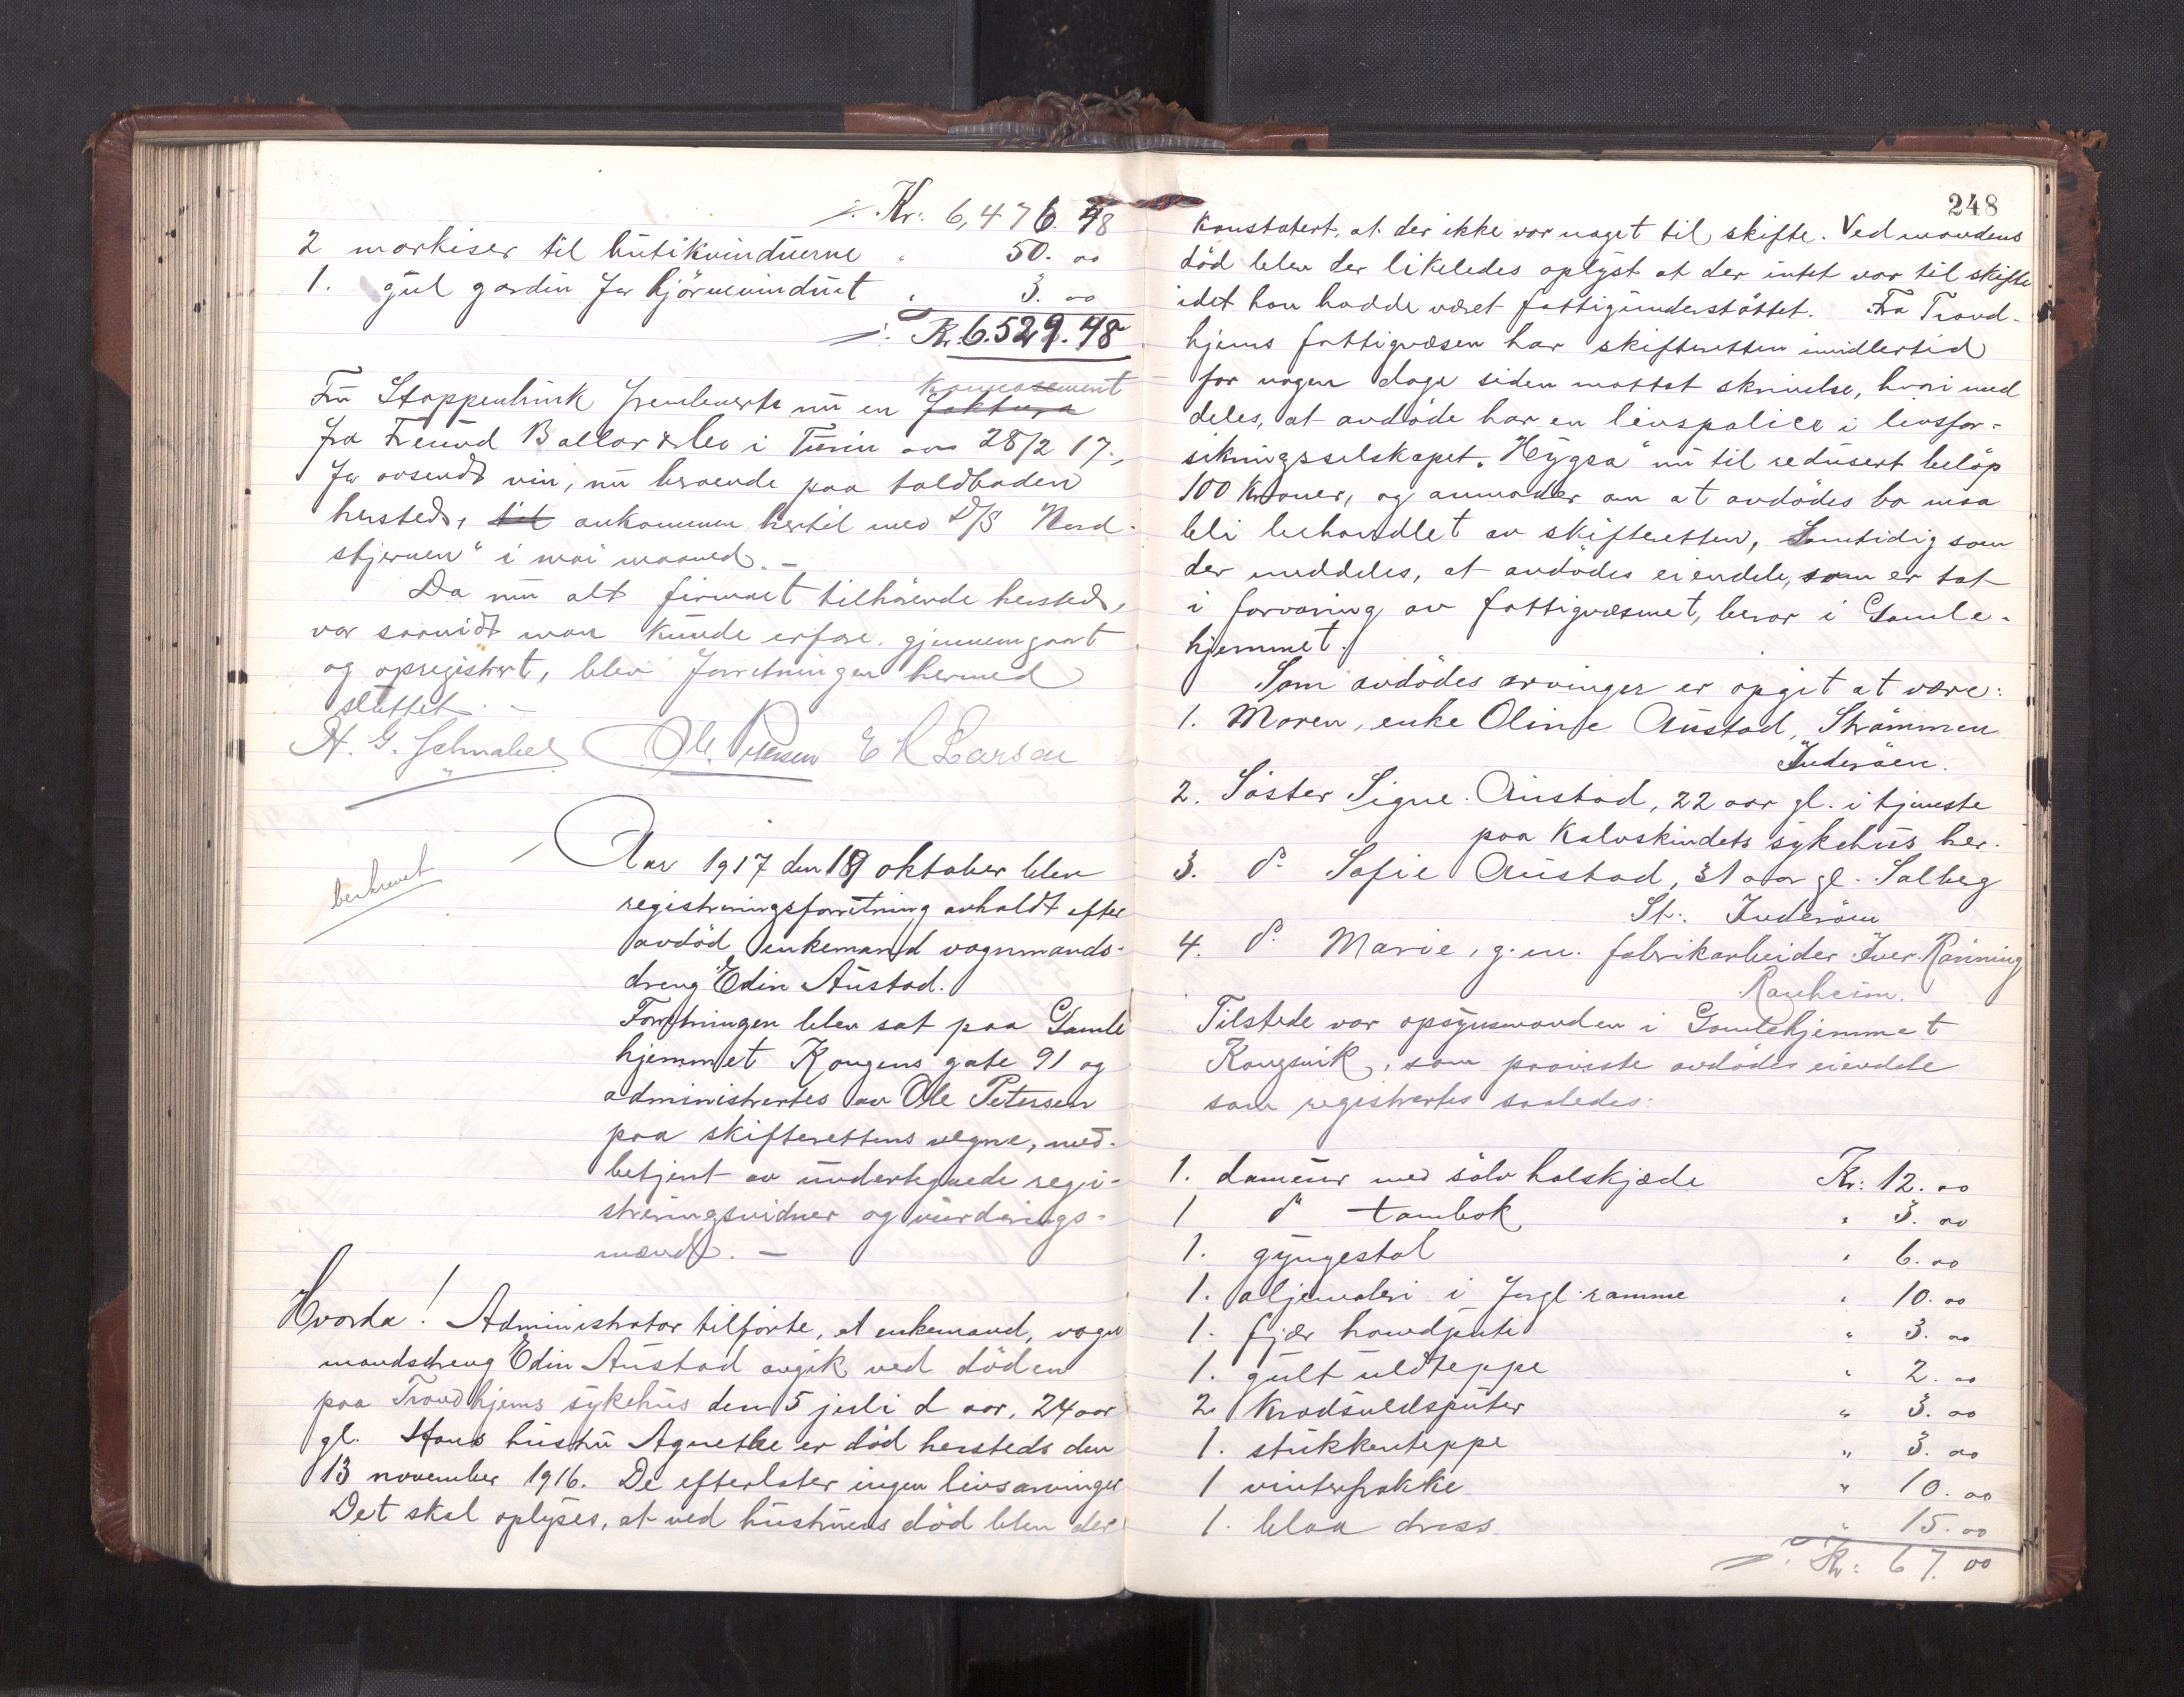 ÷ Kr: 6,476.48
2 markiser til butikvinduerne " 50.00
1. gul gardin for hjörnevinduet " 3.00
÷ Kr. 6.529.48
Konnosement
Fru Stoppenbrink fremleverte nu en faktura
fra Freund Ballor & Co i Turin av 28/2 17.,
for avsendt vin, nu beroende paa toldboden
hersteds, til ankommen hertil med D/S "Nord-
stjernen" i mai maaned. -
Da nu alt firmaet tilhörende hersteds,
var saavidt man kunde erfare gjennemgaat
og opregistrert, blev forretningen hermed
sluttet. -
H. G. Schnabel Ole Petersen E K Larsen
beskrevet
Aar 1917 den 18 oktober blev
registreringsforretning avholdt efter
avdöd enkemand vognmands-
dreng Edin Austad.
Forretningen blev sat paa Gamle
hjemmet Kongens gate 91 og
administrertes av Ole Petersen
paa skifterettens vegne, med-
betjent av undertegnede regi-
streringsvidner og vurderings-
mænd. -
Hvorda! Administrator tilförte, at enkemand, vogn
mandsdreng Edin Austad avgik ved döden
paa Trondhjems sykehus den 5 juli d aar, 24 aar
gl. Hans hustru Agnethe er död hersteds den
13 november 1916. De efterlater ingen livsarvinger
Det skal oplyses, at ved hustruens död blev der
248
konstatert, at der ikke var noget til skifte. Ved mandens
död blev der likeledes oplyst at der intet var til skifte
idet han hadde været fattigunderstöttet. Fra Trond-
hjems fattigvæsen har skifteretten imidlertid
for nogen dage siden mottat skrivelse, hvori med
deles, at avdöde har en livspolice i livsfor-
sikringsselskapet "Hygea" nu til redusert belöp
100 kroner, og anmoder om at avdödes bo maa
bli behandlet av skifteretten, Samtidig som
der meddeles, at avdödes eiendele, som er tat
i forvaring av fattigvæsenet, beror i Gamle-
hjemmet.
Som avdödes arvinger er opgit at være:
1. Moren, enke Oline Austad, Strömmen
Inderöen.
2. Söster Signe Austad, 22 aar gl. i tjeneste
paa Kalvskindets sykehus her.
3. do Sofie Austad, 31 aar gl. Salberg
St. Inderöen
4. do Marie, g. m. fabrikarbeider Iver Rönning
Ranheim.
Tilstede var opsynsmanden i Gamlehjemmet
Kongsvik, som paaviste avdödes eiendele
som registrertes saaledes:
1. dameur med sölv halskjæde Kr: 12.00
1 do tombok " 3.00
1. gyngestol " 6.00
1. oljemaleri i forgl. ramme " 10.00
1. fjær hovedpute " 3.00
1. gult uldteppe " 2.00
2 krodsuldsputer " 3.00
1. stukkenteppe " 3.00
1 vinterfrakke " 10.00
1. blaa dress " 15.00
÷ Kr: 67.00